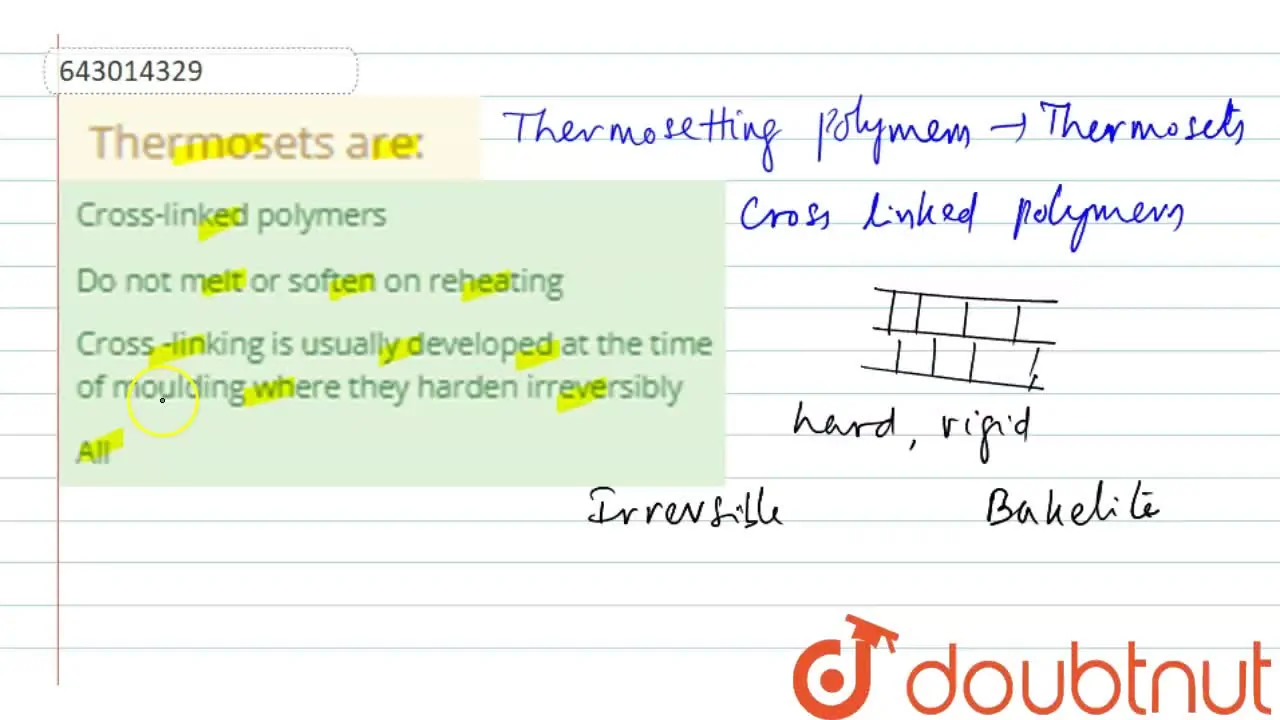 643014329
Thermosets are:
Thermosetting polymers → Thermosets
Cross-linked polymers
Cross linked polymers
Do not melt or soften on reheating
Cross -linking is usually developed at the time
of moulding where they harden irreversibly
hard, rigid
All
Irreversible
Bakelite
doubtnut